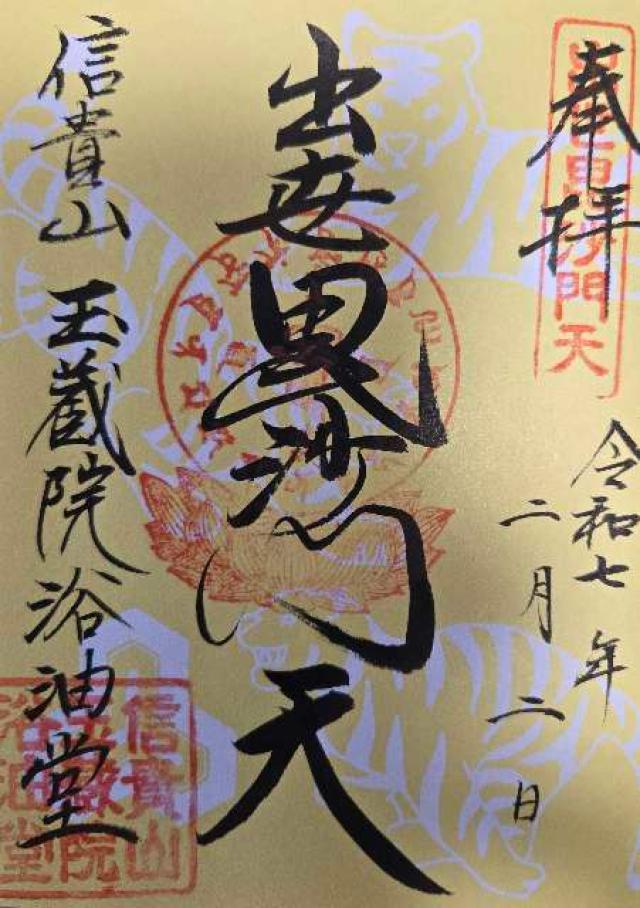 奉拝
令和七年
二月二日
出世毘沙門天
信貴山 玉蔵院浴油堂
信貴山
玉蔵院
浴油堂